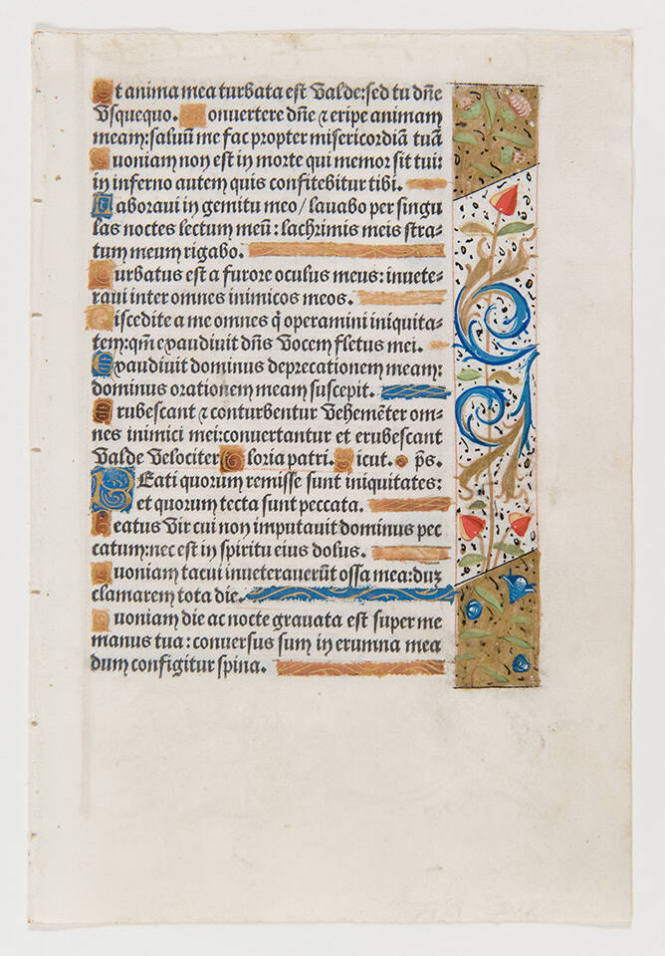 Et anima mea turbata est Valde: sed tu dñe
Vsquequo. Conuertere dñe ⁊ eripe animam
meam: saluũ me fac propter misericordiã tuã
Quoniam non est in morte qui memor sit tui:
in inferno autem quis confitebitur tibi.
Laboraui in gemitu meo / lauabo per singu
las noctes lectum meũ: lachrimis meis stra-
tum meum rigabo.
Turbatus est a furore oculus meus: inuete-
raui inter omnes inimicos meos.
Discedite a me omnes q̃ operamini iniquita-
tem: qm̃ exaudiuit dñs Vocem fletus mei.
Exaudiuit dominus deprecationem meam:
dominus orationem meam suscepit.
Erubescant ⁊ conturbentur Vehemẽter om-
nes inimici mei: conuertantur et erubescant
Valde Velociter Gloria patri. Sicut. p̃s.
BEati quorum remisse sunt iniquitates:
et quorum tecta sunt peccata.
Beatus Vir cui non imputauit dominus pec
catum: nec est in spiritu eius dolus.
Quoniam tacui inueterauerũt ossa mea: duʒ
clamarem tota die.
Quoniam die ac nocte grauata est super me
manus tua: conuersus sum in erumna mea
dum configitur spina.